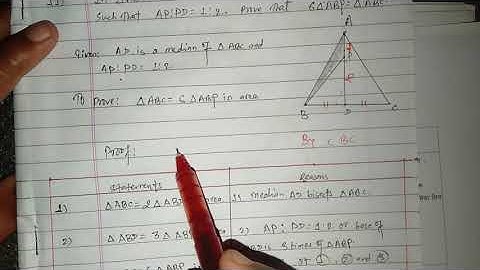 such that AP:PD = 1:2. Prove that 6△ABP = △ABC.
Given: AD is a median of △ABC and
AP:PD = 1:2
To prove: △ABC = 6 △ABP in area
A
P
B
D
C
By C BC
Proof:
Statements
Reasons
1) △ABC = 2 △AB area 1) median AD bisects △ABC
2) △ABD = 3 △AB area 2) AP:PD = 1:2 or base of
is 3 times of △ABP
① ② and ③